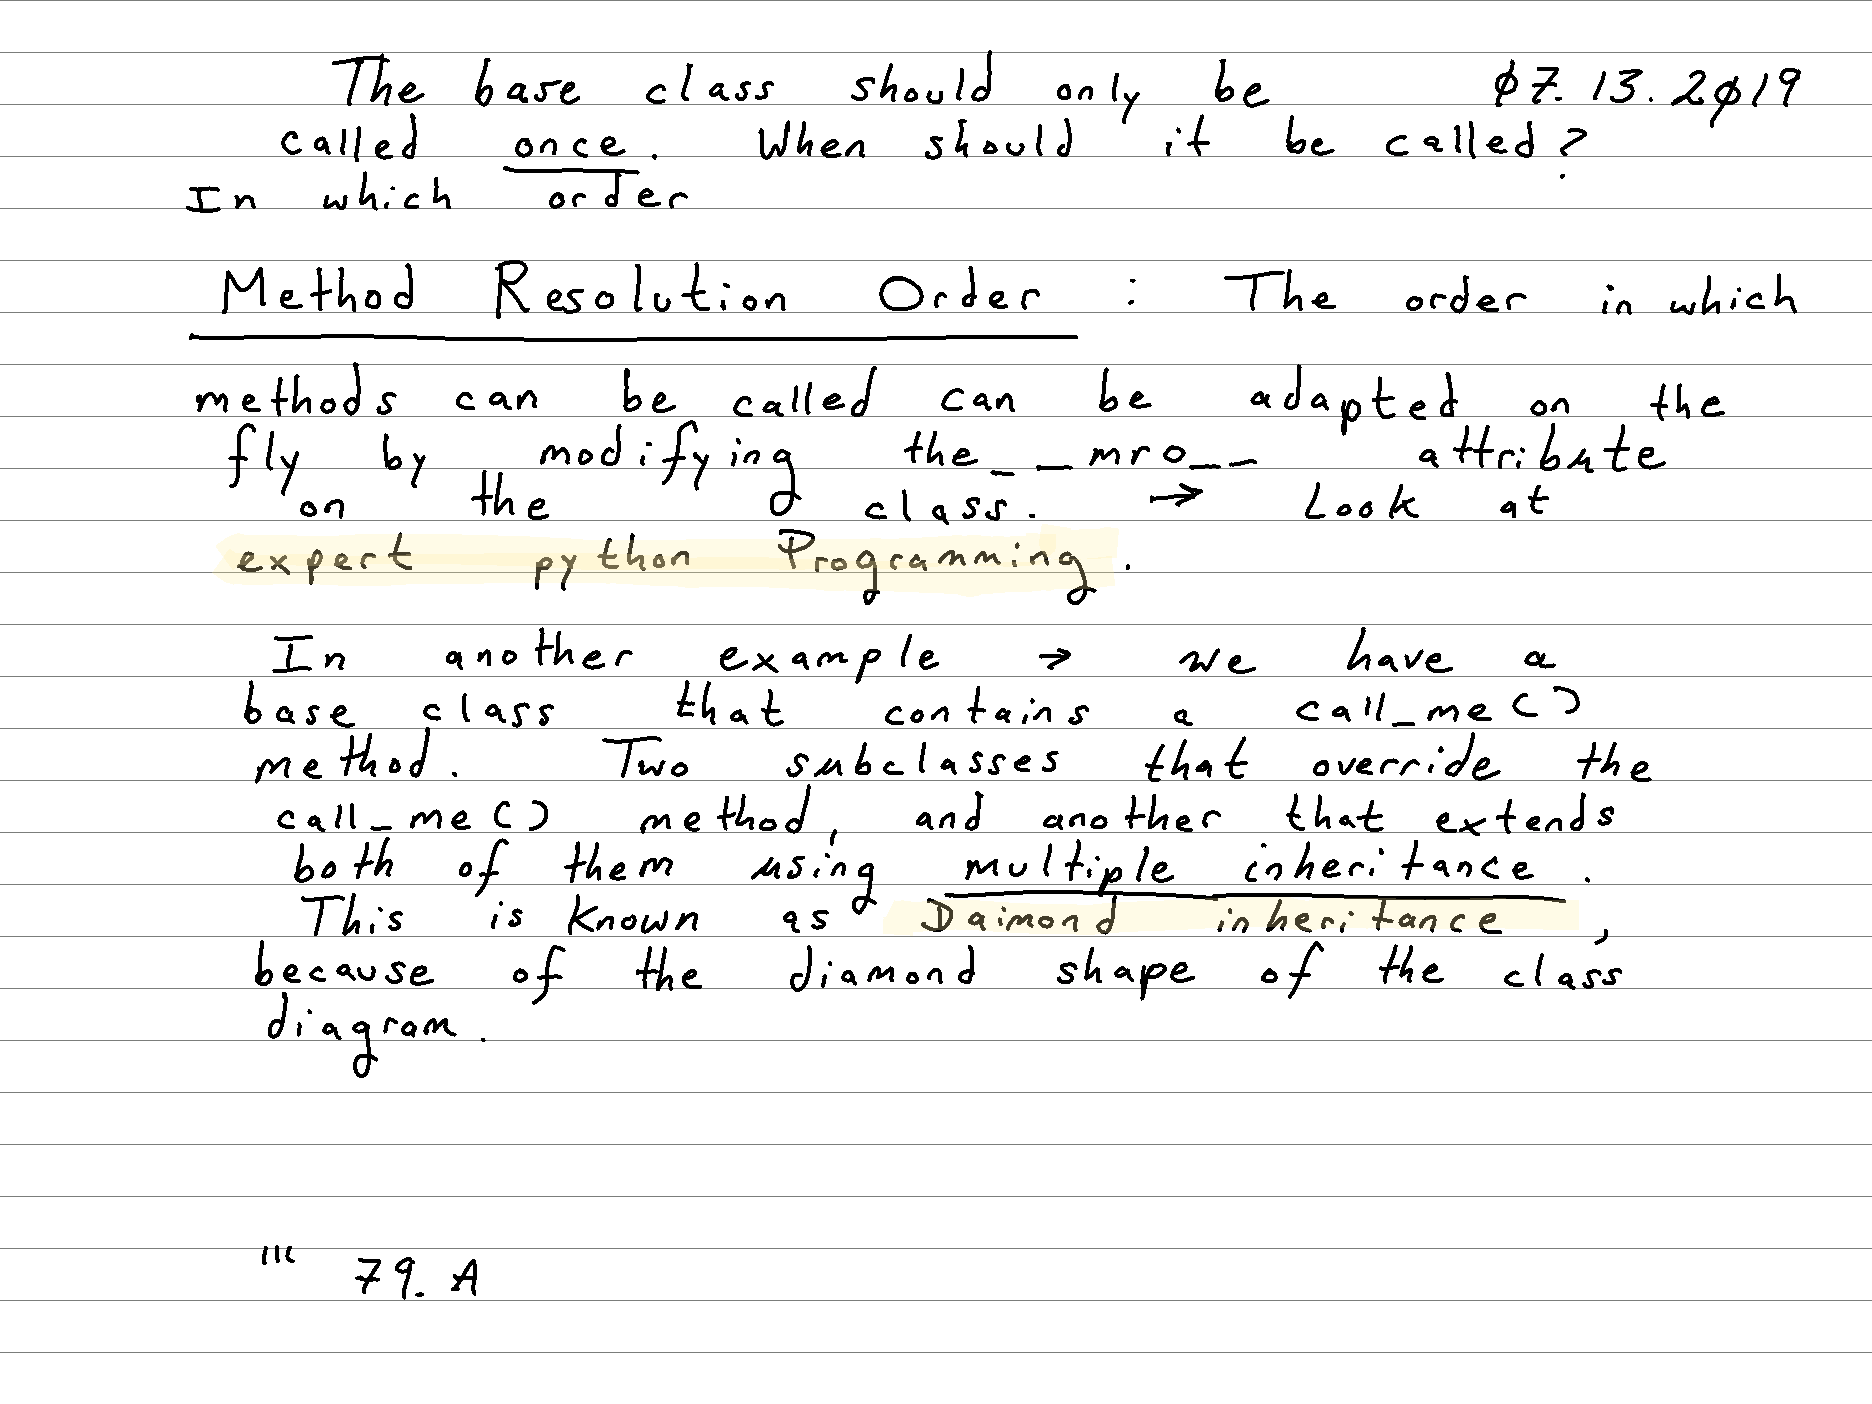 The base class should only be 07.13.2019
called once. When should it be called?
In which order
Method Resolution Order : The order in which
methods can be called can be adapted on the
fly by modifying the __mro__ attribute
on the class. → Look at
expert python Programming.
In another example → we have a
base class that contains a call_me()
method. Two subclasses that override the
call_me() method, and another that extends
both of them using multiple inheritance.
This is known as Daimond inheritance,
because of the diamond shape of the class
diagram.
79. A